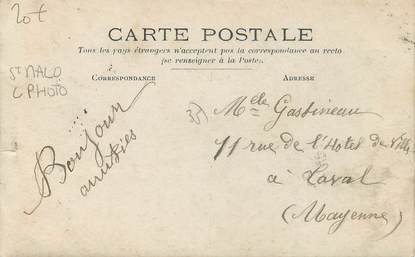 20t
CARTE POSTALE
Tous les pays étrangers n'acceptent pas la correspondance au recto
(se renseigner à la Poste).
CORRESPONDANCE
ADRESSE
ST MALO
C PHOTO
Bonjour
amitiés
35)
Melle Gastineau
11 rue de l'Hotel de Ville
à Laval
(Mayenne)